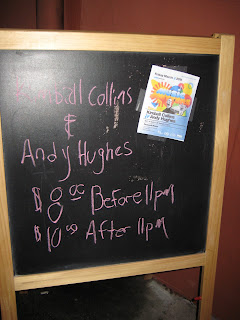 Kimball Collins
&
Andy Hughes
$8.00 Before 11pm
$10.00 After 11pm
Kimball Collins
Andy Hughes